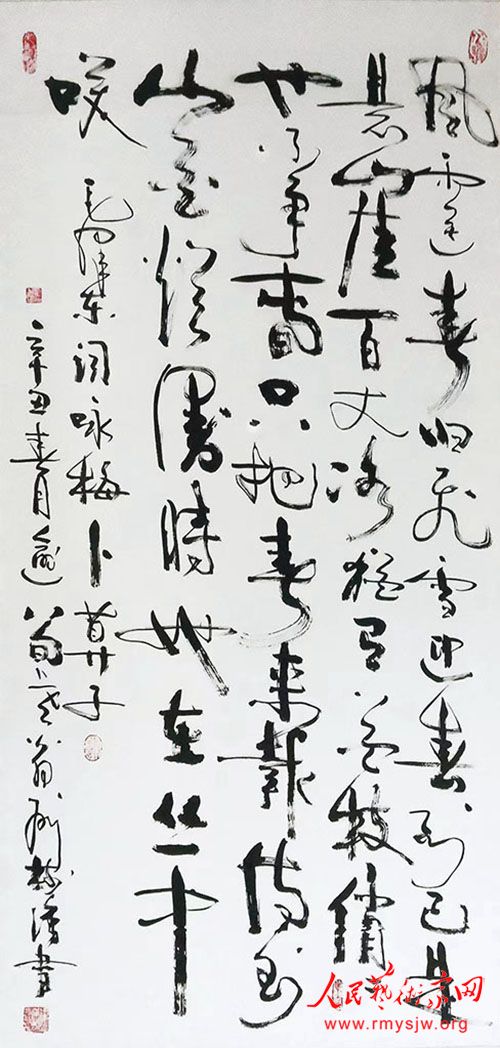 風雨送春归飞雪迎春到已是
悬崖百丈冰猶有花枝俏
也不争春只把春来報待到
山花烂漫時她在丛中
咲
毛泽东词咏梅卜算子
辛丑春月
人民藝術家网
www.rmysjw.org